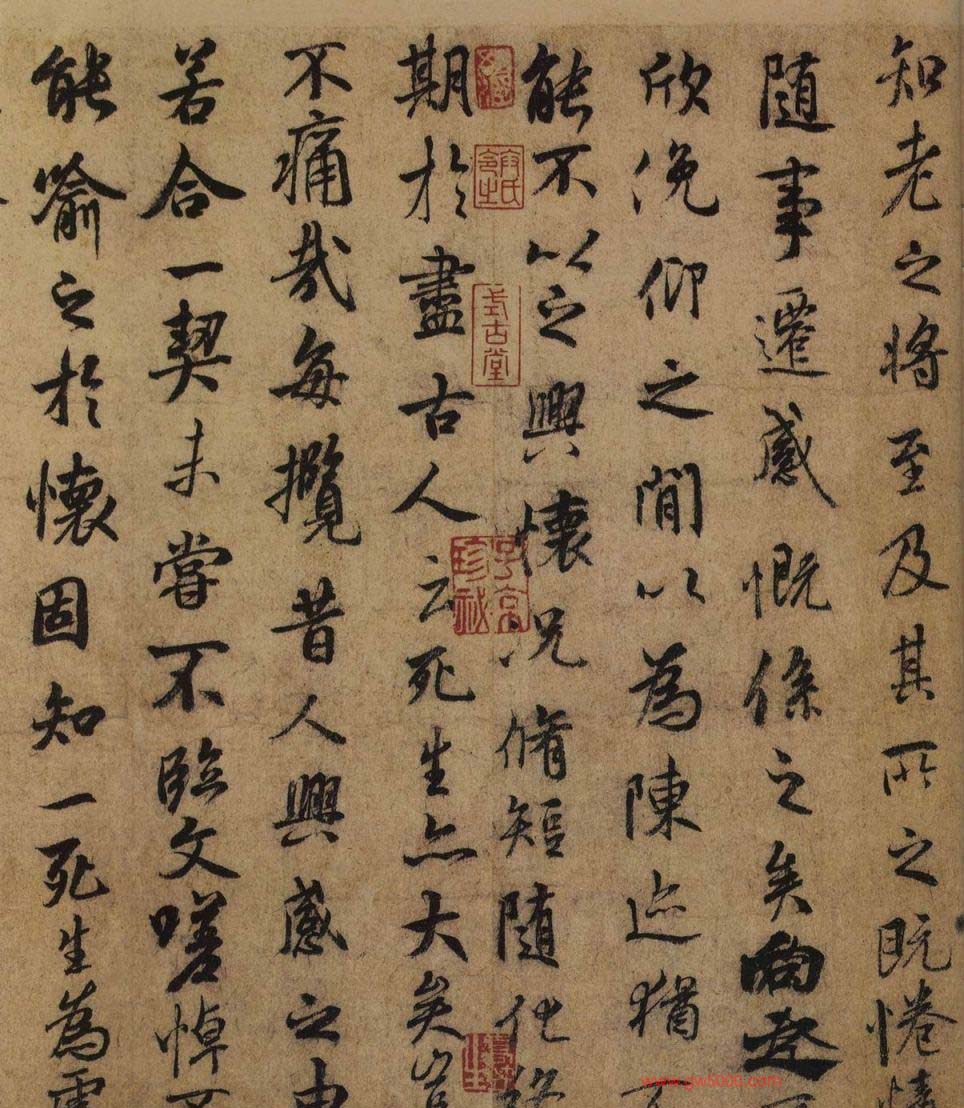 知老之將至及其所之既惓情
随事遷感慨係之矣向之
欣俛仰之閒以為陳迹猶不
能不以之興懷況脩短随化終
期於盡古人云死生亦大矣豈
不痛哉每攬昔人興感之由
若合一契未嘗不臨文嗟悼不
能喻之於懷固知一死生為虛
式古堂
珍祕
www.gw5000.com